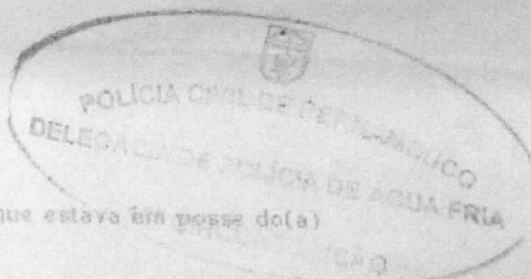 POLÍCIA CIVIL DE PERNAMBUCO
DELEGACIA DE POLÍCIA DE AGUA FRIA
que estava em posse do(a)